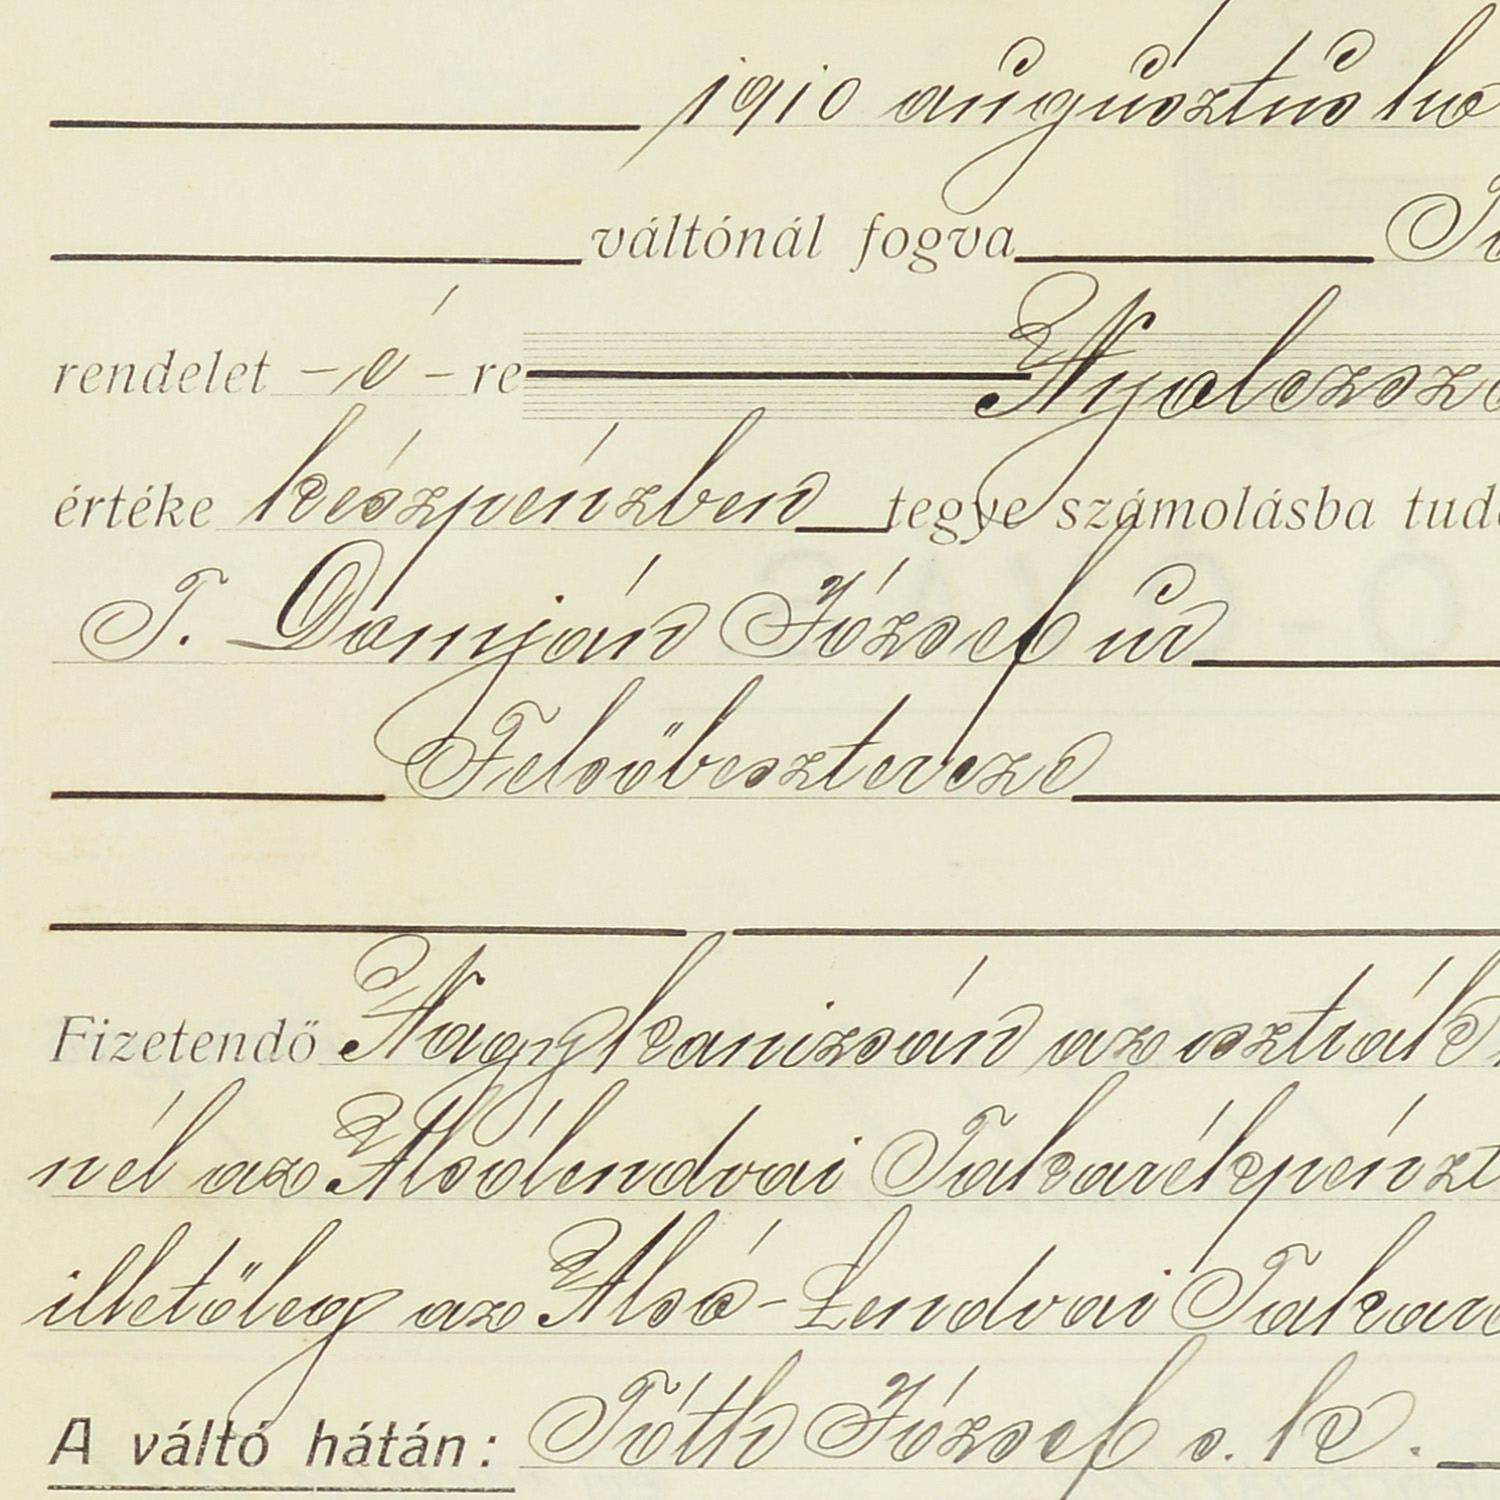 1910 augusztus hó
váltónál fogva
rendelet – é – re Nyolczszá
értéke készpénzben tegye számolásba tud
T. Domján József úr
Felsőbeszterecze
Fizetendő Nagykanizsán az osztrák
nél az Alsólendvai Takarékpénzt
illetőleg az Alsó-Lendvai Takaré
A váltó hátán: Tóth József s. k.